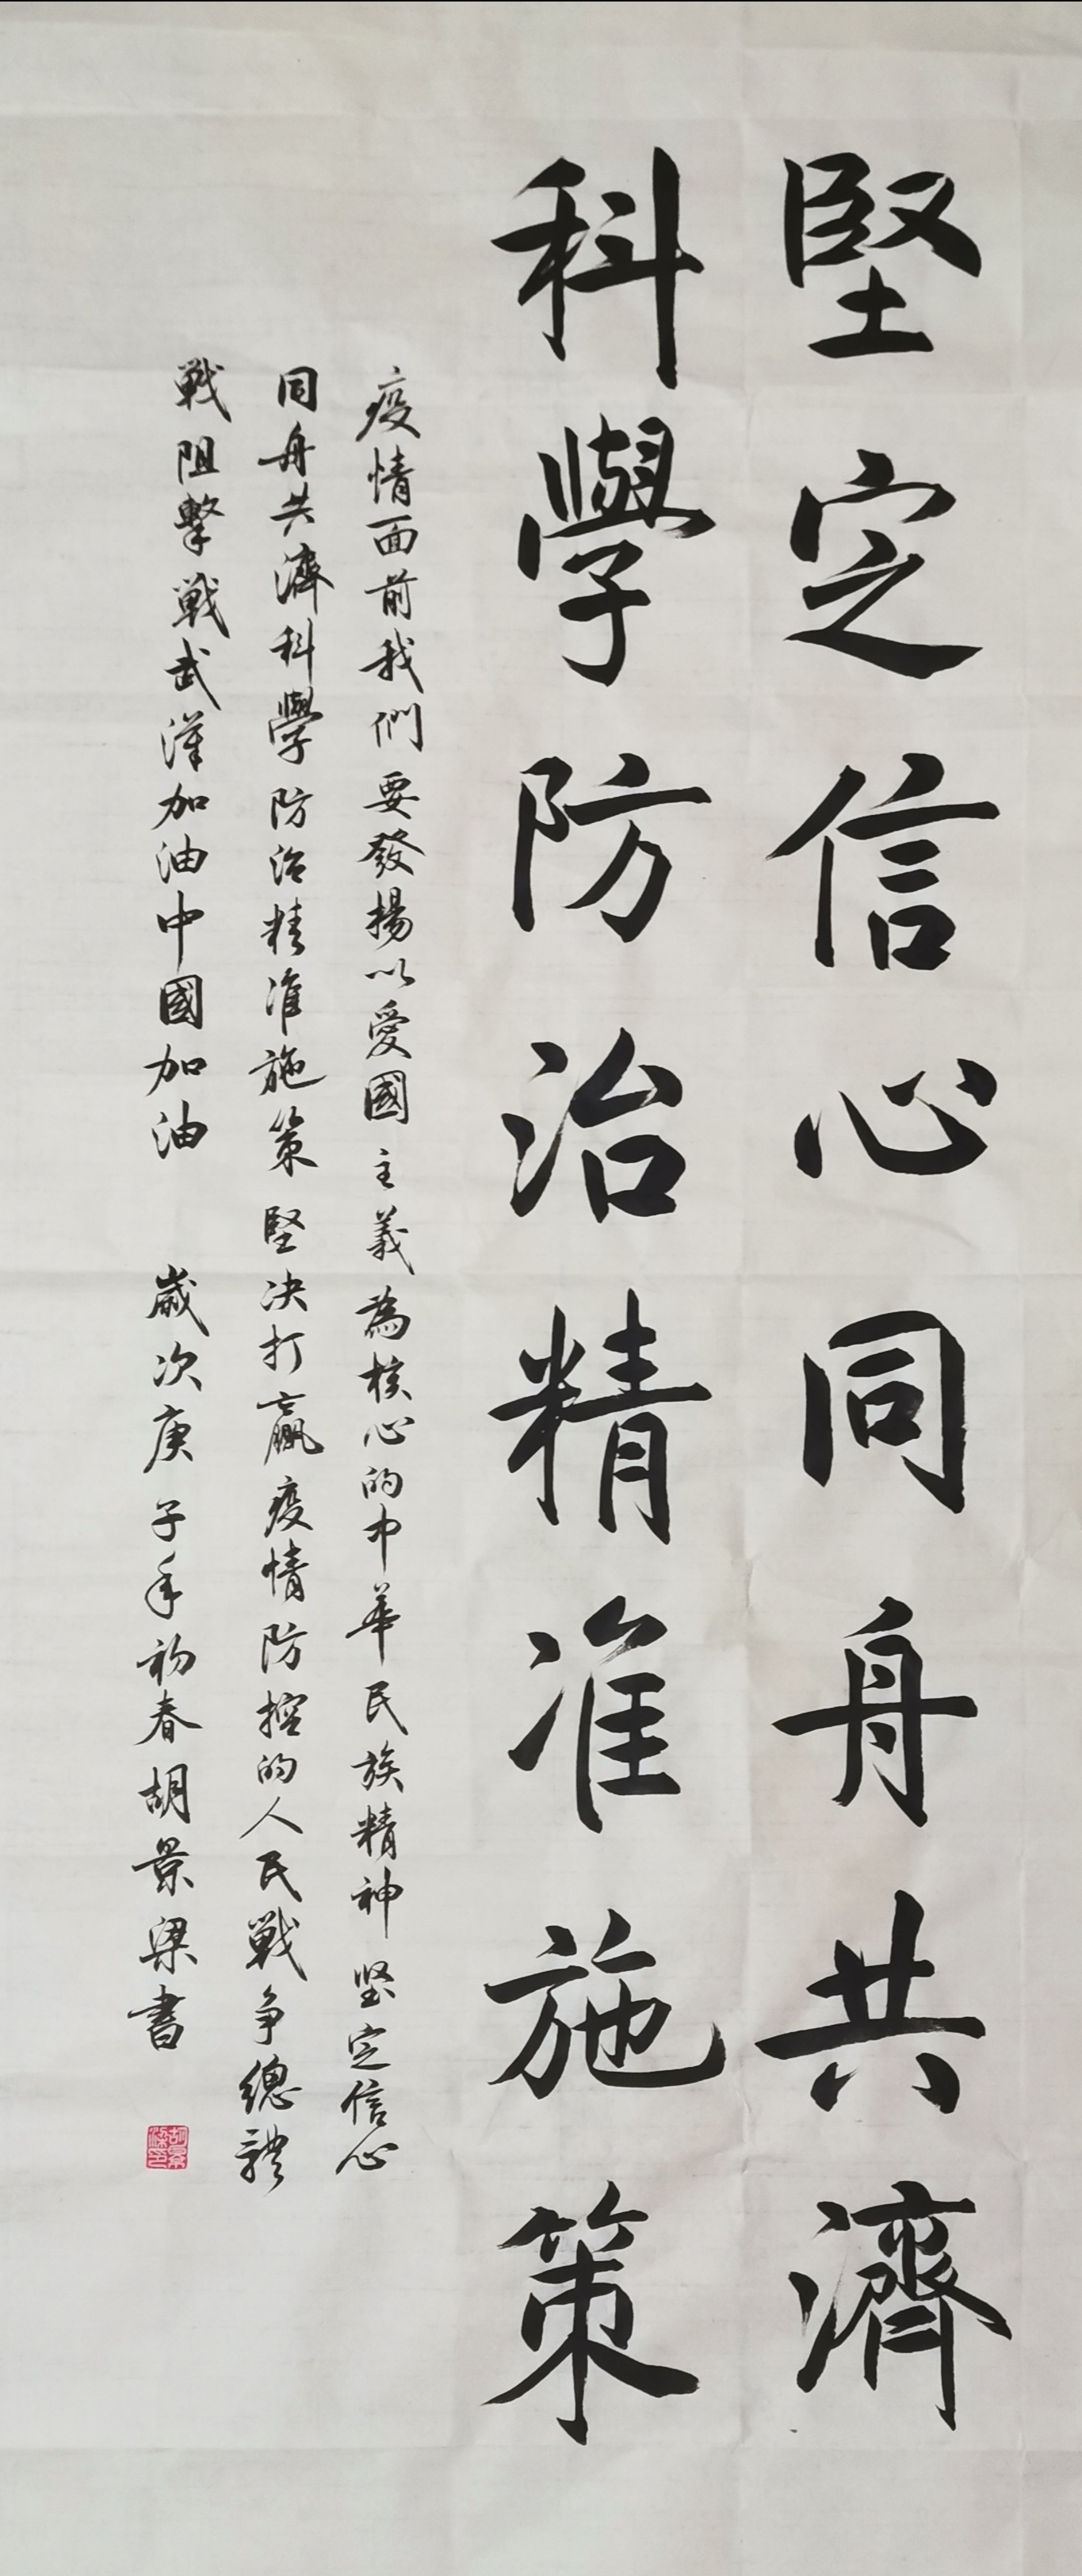 堅定信心同舟共濟
科學防治精准施策
疫情面前我們要發揚以愛國主義為核心的中華民族精神坚定信心
同舟共濟科學防治精准施策堅决打贏疫情防控的人民戰争總體
戰阻擊戰武漢加油中國加油 歲次庚子年初春胡景梁書
胡景梁印